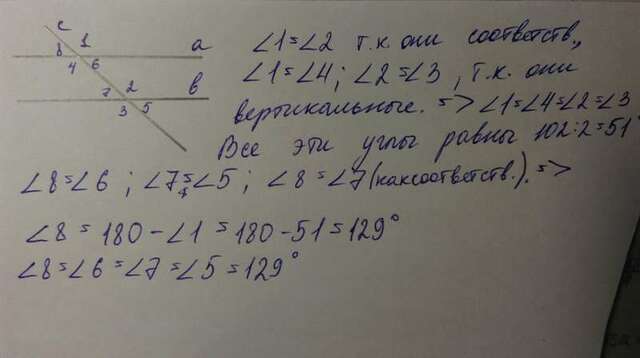 c
8 1 a
4 6
7 2 в
3 5
∠1=∠2 т.к. они соответств.,
∠1=∠4; ∠2=∠3, т.к. они
вертикальные. => ∠1=∠4=∠2=∠3
Все эти углы равны 102:2=51°
∠8=∠6; ∠7=∠5; ∠8=∠7(каксоответств.). =>
∠8 = 180-∠1 = 180-51=129°
∠8=∠6=∠7=∠5=129°